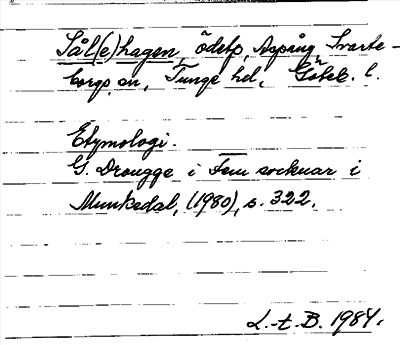 Sål(e)hagen, ödetp, Aspång, Svarte-
borgs sn, Tunge hd, Göteb. l.
Etymologi.
G. Drougge i Fem socknar i
Munkedal, (1980), s. 322.
L.-t. B. 1984.